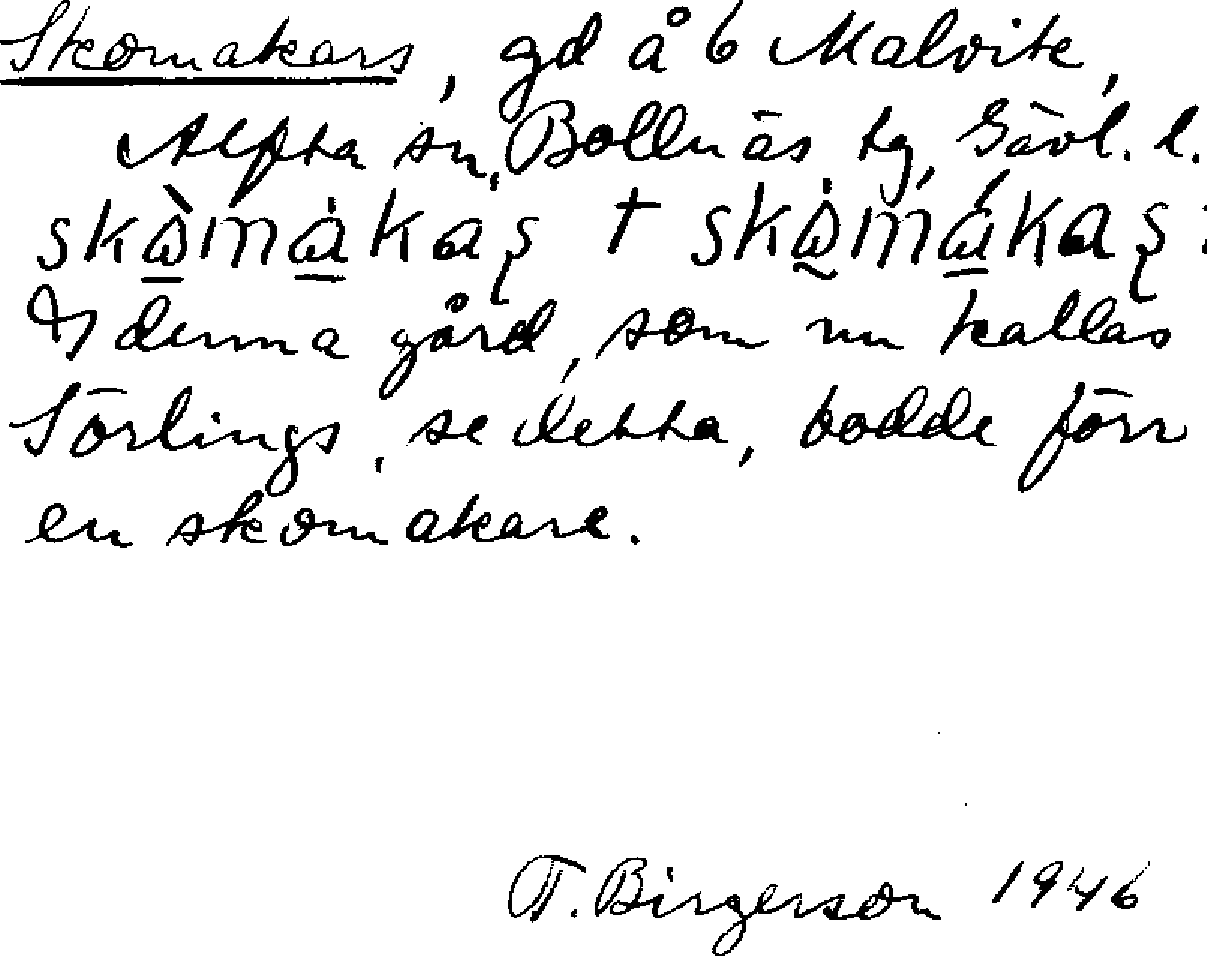 Skomakars, gd å 6 Malvik,
Alfta sn, Bollnäs tg, Gävl. l.
skòmàkaş † skòmákaş:
I denna gård, som nu kallas
Sörlings, se detta, bodde förr
en skomakare.
T. Birgerson 1946